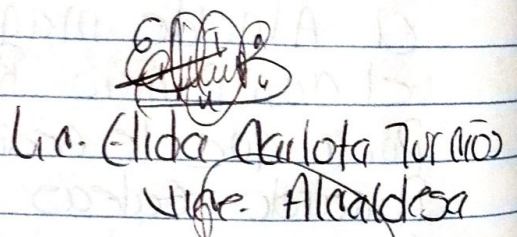 Lic. Elida Carlota Turcios
Vice. Alcaldesa